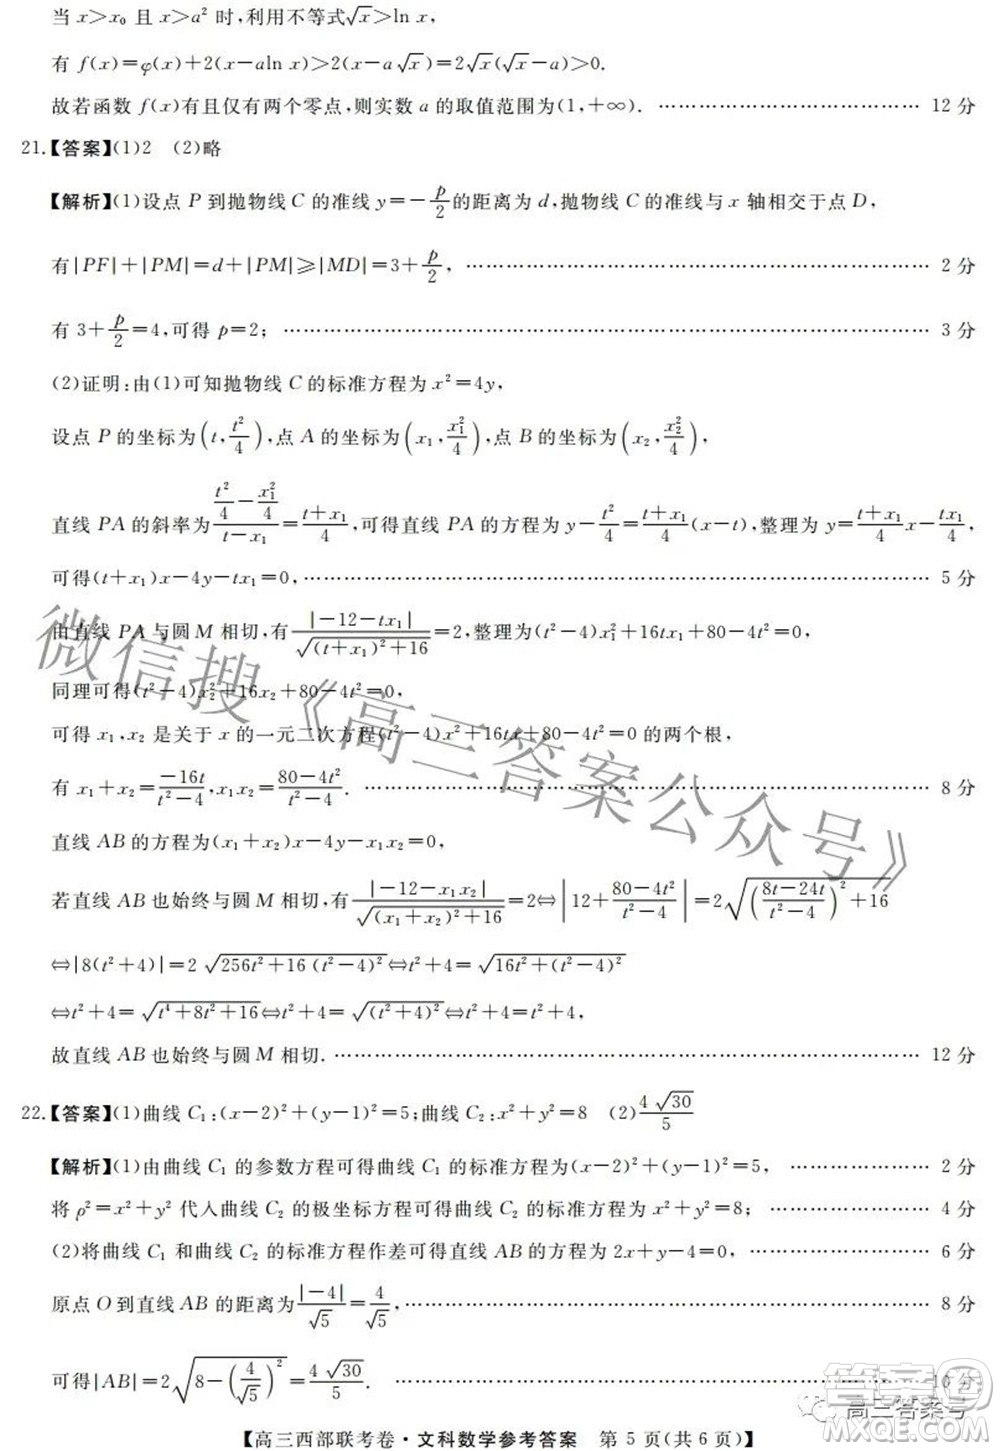 当 x>x₀ 且 x>a² 时,利用不等式√x>ln x,
有 f(x)=φ(x)+2(x-aln x)>2(x-a√x)=2√x(√x-a)>0.
故若函数 f(x)有且仅有两个零点,则实数 a 的取值范围为(1,+∞). …………………………………… 12 分
21.【答案】(1)2 (2)略
【解析】(1)设点 P 到抛物线 C 的准线 y=-p/2的距离为 d,抛物线 C 的准线与 x 轴相交于点 D,
有|PF|+|PM|=d+|PM|≥|MD|=3+p/2, …………………………………… 2 分
有 3+p/2=4,可得 p=2; …………………………………… 3 分
(2)证明:由(1)可知抛物线 C 的标准方程为 x²=4y,
设点 P 的坐标为(t,t²/4),点 A 的坐标为(x₁,x₁²/4),点 B 的坐标为(x₂,x₂²/4),
直线 PA 的斜率为(t²/4-x₁²/4)/(t-x₁)=(t+x₁)/4,可得直线 PA 的方程为 y-t²/4=(t+x₁)/4(x-t),整理为 y=(t+x₁)/4x-tx₁/4,
可得(t+x₁)x-4y-tx₁=0, …………………………………… 5 分
由直线 PA 与圆 M 相切,有|-12-tx₁|/√((t+x₁)²+16)=2,整理为(t²-4)x₁²+16tx₁+80-4t²=0,
同理可得(t²-4)x₂²+16x₂+80-4t²=0,
可得 x₁,x₂ 是关于 x 的一元二次方程(t²-4)x²+16tx+80-4t²=0 的两个根,
有 x₁+x₂=-16t/(t²-4),x₁x₂=(80-4t²)/(t²-4). …………………………………… 8 分
直线 AB 的方程为(x₁+x₂)x-4y-x₁x₂=0,
若直线 AB 也始终与圆 M 相切,有|-12-x₁x₂|/√((x₁+x₂)²+16)=2⇔|12+(80-4t²)/(t²-4)|=2√(((8t-24t)/(t²-4))²+16)
⇔|8(t²+4)|=2√(256t²+16(t²-4)²)⇔t²+4=√(16t²+(t²-4)²)
⇔t²+4=√(t⁴+8t²+16)⇔t²+4=√((t²+4)²)⇔t²+4=t²+4,
故直线 AB 也始终与圆 M 相切. …………………………………… 12 分
22.【答案】(1)曲线 C₁:(x-2)²+(y-1)²=5;曲线 C₂:x²+y²=8 (2)4√30/5
【解析】(1)由曲线 C₁ 的参数方程可得曲线 C₁ 的标准方程为(x-2)²+(y-1)²=5, ……………… 2 分
将 ρ²=x²+y² 代入曲线 C₂ 的极坐标方程可得曲线 C₂ 的标准方程为 x²+y²=8; ……………… 4 分
(2)将曲线 C₁ 和曲线 C₂ 的标准方程作差可得直线 AB 的方程为 2x+y-4=0, ……………… 6 分
原点 O 到直线 AB 的距离为|-4|/√5=4/√5, …………………………………… 8 分
可得|AB|=2√(8-(4/√5)²)=4√30/5. …………………………………… 10 分
【高三西部联考卷·文科数学参考答案 第 5 页(共 6 页)】
微信搜《高三答案公众号》
高三答案号
答案圈
MXQE.COM